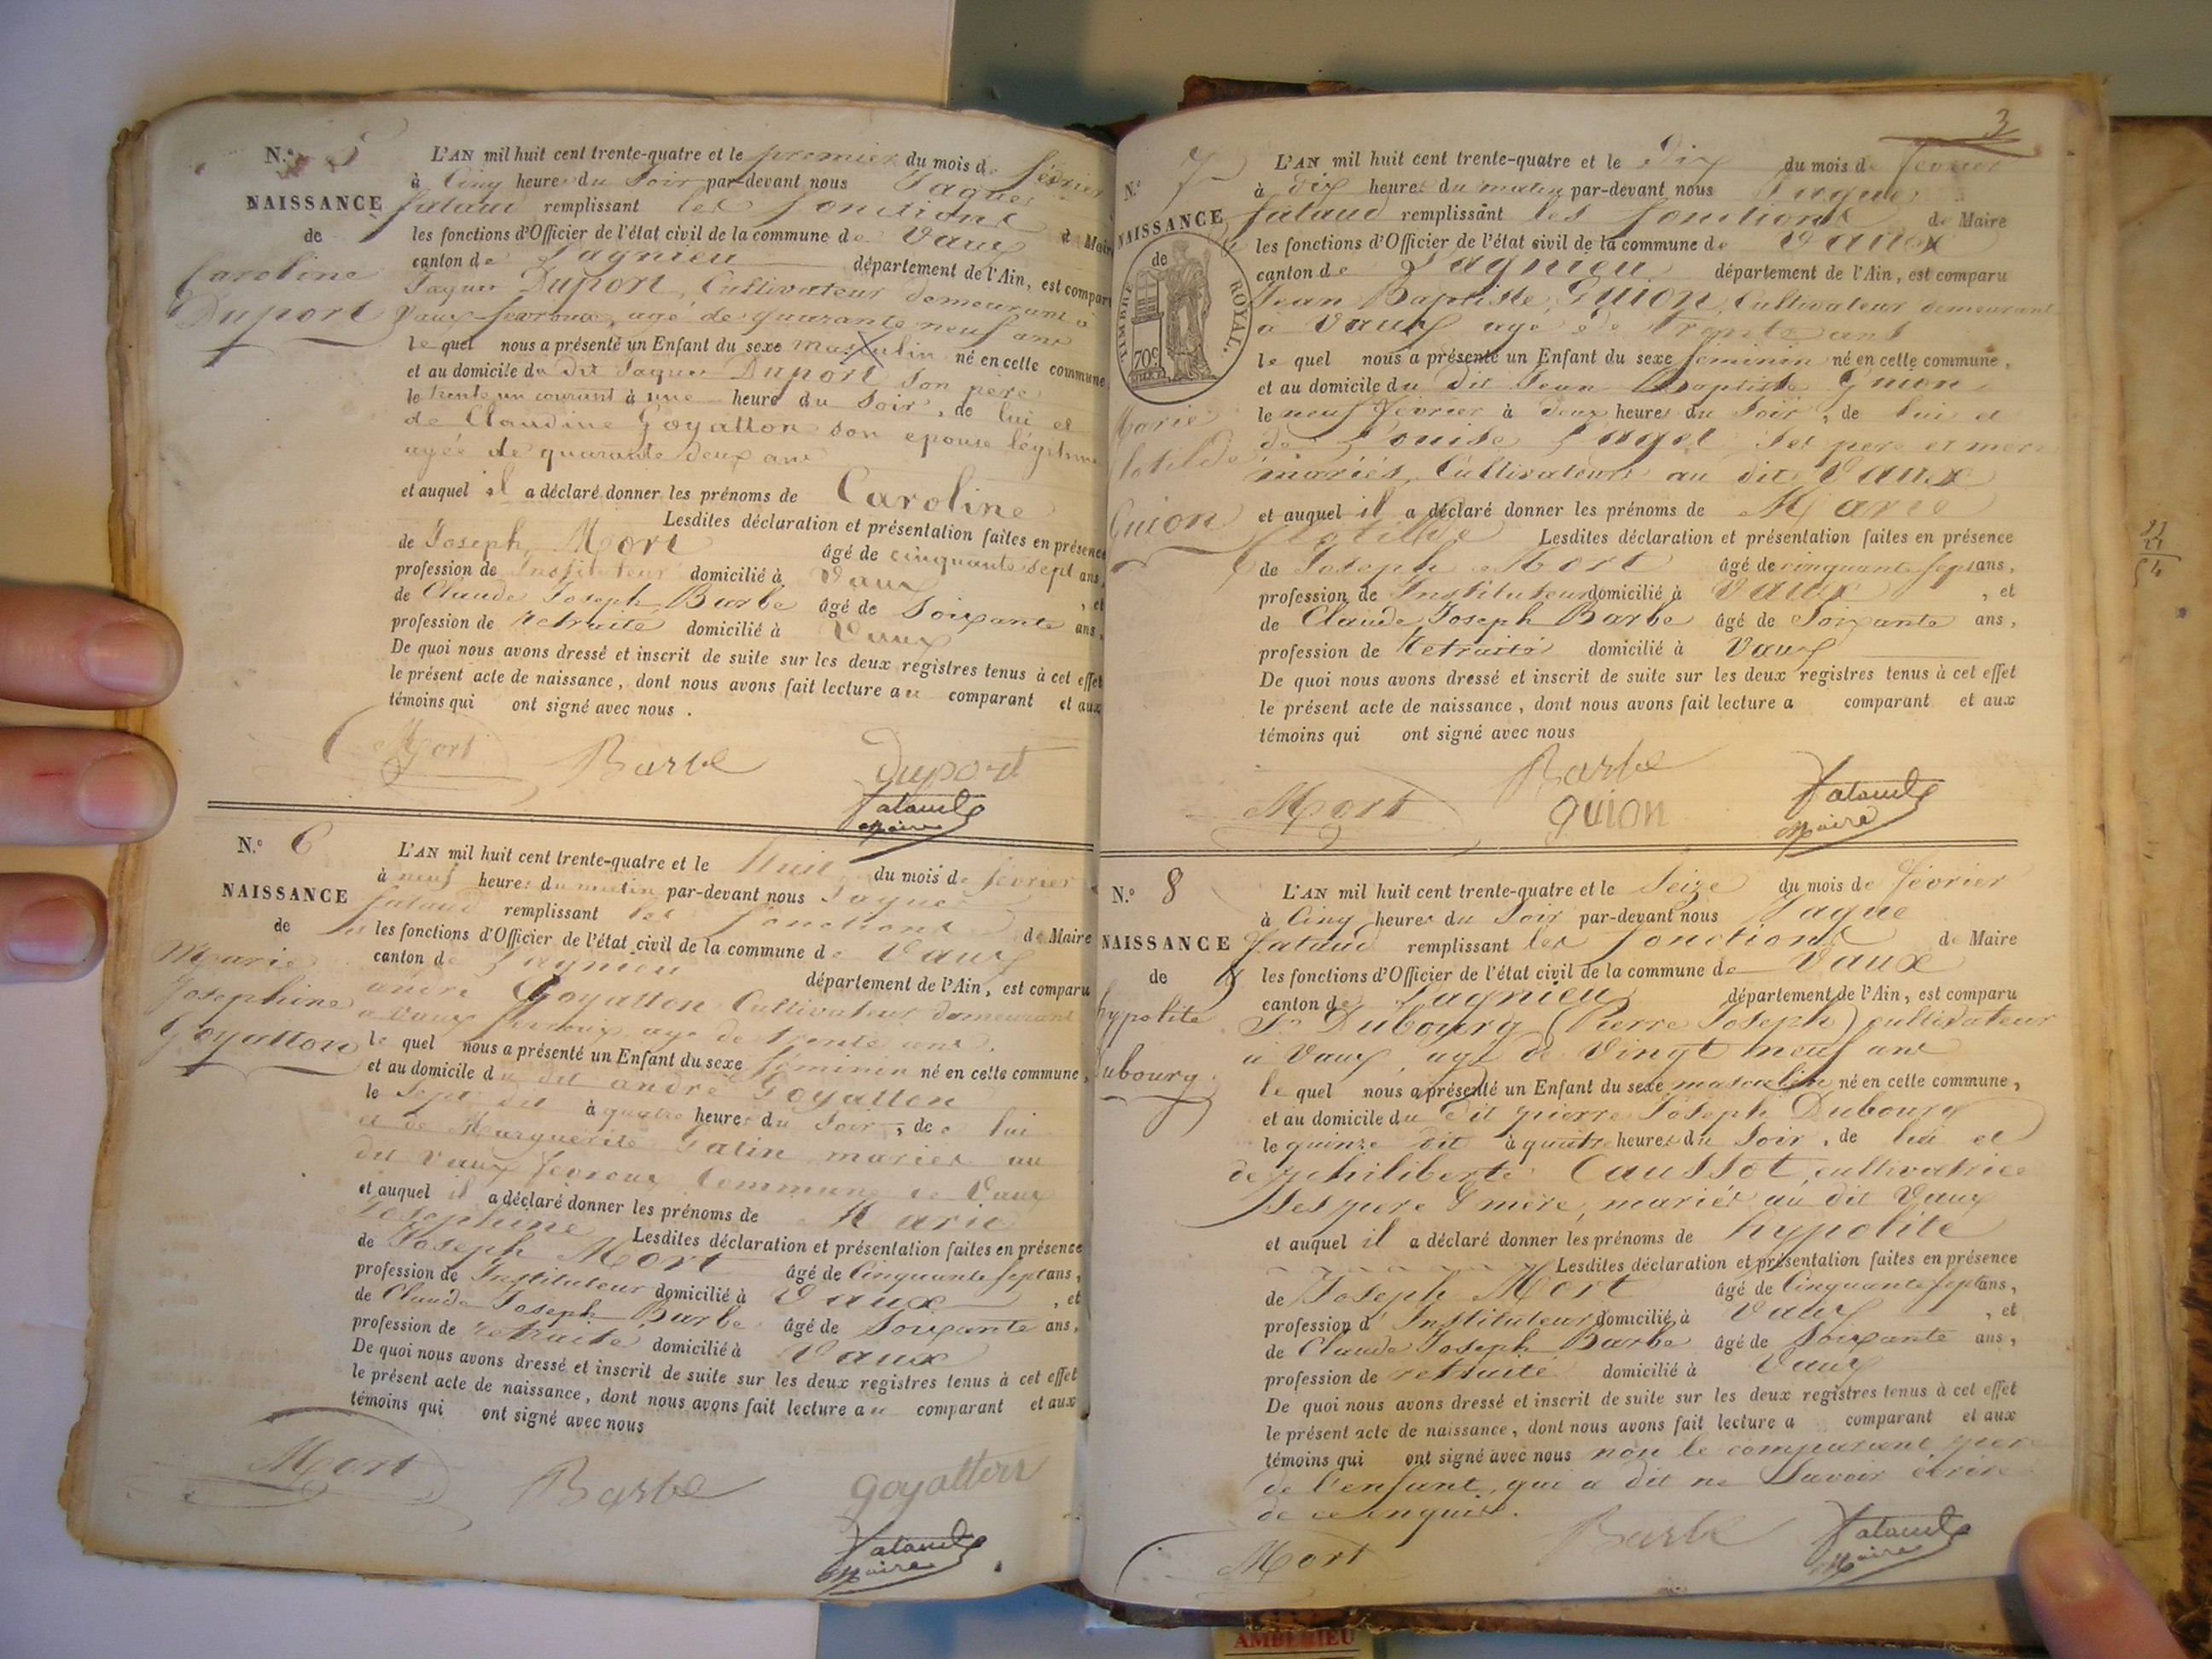 N.º 5
NAISSANCE
de
Caroline
Duport
L'AN mil huit cent trente-quatre et le premier du mois de février
à Cinq heures du Soir par-devant nous Jaques
fataud remplissant les fonctions de Maire
les fonctions d'Officier de l'état civil de la commune de Vaux
canton de Lagnieu département de l'Ain, est comparu
Jaques Duport, Cultivateur demeurant à
Vaux fevroux, agé de quarante neuf ans
le quel nous a présenté un Enfant du sexe masculin né en cette commune
et au domicile du dit Jaques Duport son pere
le trente un courant à une heure du Soir, de lui et
de Claudine Goyatton son epouse légitime
agée de quarante deux ans
et auquel il a déclaré donner les prénoms de Caroline
Lesdites déclaration et présentation faites en présence
de Joseph Mort âgé de cinquante sept ans,
profession de Instituteur domicilié à Vaux, et
de Claude Joseph Barbe âgé de Soixante ans,
profession de retraité domicilié à Vaux
De quoi nous avons dressé et inscrit de suite sur les deux registres tenus à cet effet
le présent acte de naissance, dont nous avons fait lecture au comparant et aux
témoins qui ont signé avec nous.
Mort Barbe duport
fataud
Maire
N.º 6
NAISSANCE
de
Marie
Josephine
Goyatton
L'AN mil huit cent trente-quatre et le huit du mois de février
à neuf heures du matin par-devant nous Jaques
fataud remplissant les fonctions de Maire
les fonctions d'Officier de l'état civil de la commune de Vaux
canton de Lagnieu département de l'Ain, est comparu
andré Goyatton Cultivateur demeurant
a Vaux fevroux age de trente ans.
le quel nous a présenté un Enfant du sexe féminin né en cette commune,
et au domicile du dit andré Goyatton
le Sept dit à quatre heures du Soir, de lui
et de Marguerite Gatin mariés au
dit Vaux fevroux Commune de Vaux
et auquel il a déclaré donner les prénoms de Marie
Josephine Lesdites déclaration et présentation faites en présence
de Joseph Mort âgé de Cinquante sept ans,
profession de Instituteur domicilié à Vaux, et
de Claude Joseph Barbe âgé de Soixante ans,
profession de retraité domicilié à Vaux
De quoi nous avons dressé et inscrit de suite sur les deux registres tenus à cet effet
le présent acte de naissance, dont nous avons fait lecture au comparant et aux
témoins qui ont signé avec nous
Mort Barbe goyatton
fataud
Maire
3
N.º 7
NAISSANCE
de
TIMBRE ROYAL.
70c
Marie
Clotilde
Guion
L'AN mil huit cent trente-quatre et le Dix du mois de fevrier
à dix heures du matin par-devant nous Jaques
fataud remplissant les fonctions de Maire
les fonctions d'Officier de l'état civil de la commune de Vaux
canton de Lagnieu département de l'Ain, est comparu
Jean Baptiste Guion, Cultivateur demeurant
a Vaux age de Trente ans
le quel nous a présenté un Enfant du sexe féminin né en cette commune,
et au domicile du dit Jean Baptiste Guion
le neuf février à deux heures du Soir, de lui et
de Louise Laget Ses pere et mere
mariés, Cultivateurs au dit Vaux
et auquel il a déclaré donner les prénoms de Marie
Clotilde Lesdites déclaration et présentation faites en présence
de Joseph Mort âgé de cinquante sept ans,
profession de Instituteur domicilié à Vaux, et
de Claude Joseph Barbe âgé de Soixante ans,
profession de Retraité domicilié à Vaux
De quoi nous avons dressé et inscrit de suite sur les deux registres tenus à cet effet
le présent acte de naissance, dont nous avons fait lecture a comparant et aux
témoins qui ont signé avec nous
Mort Barbe guion fataud
Maire
N.º 8
NAISSANCE
de
hypolite
Dubourg
L'AN mil huit cent trente-quatre et le Seize du mois de février
à Cinq heures du Soir par-devant nous Jaque
fataud remplissant les fonctions de Maire
les fonctions d'Officier de l'état civil de la commune de Vaux
canton de Lagnieu département de l'Ain, est comparu
Dubourg (Pierre Joseph) cultivateur
a Vaux, agé de Vingt neuf ans
le quel nous a présenté un Enfant du sexe masculin né en cette commune,
et au domicile du dit pierre Joseph Dubourg
le quinze dit à quatre heures du Soir, de lui et
de philiberte Caussot, cultivatrice
Ses pere & mere, mariés au dit Vaux
et auquel il a déclaré donner les prénoms de hypolite
Lesdites déclaration et présentation faites en présence
de Joseph Mort âgé de Cinquante sept ans,
profession d' Instituteur domicilié à Vaux, et
de Claude Joseph Barbe âgé de Soixante ans,
profession de retraité domicilié à Vaux
De quoi nous avons dressé et inscrit de suite sur les deux registres tenus à cet effet
le présent acte de naissance, dont nous avons fait lecture a comparant et aux
témoins qui ont signé avec nous non le comparant pere
de l'enfant, qui a dit ne Savoir écrire
de ce enquis.
Mort Barbe fataud
Maire
AMBERIEU